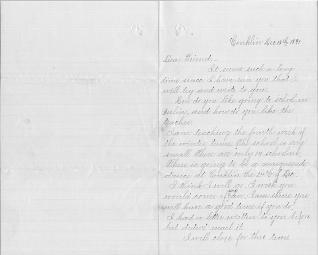 Conklin Dec 18th 1891
Dear Friend:
It seems such a long
time since I have seen you that I
will try and write to you.
How do you like going to school in
and how do you like the
teacher.
I am teaching the fourth week of
the winter term the school is very
small there are only 12 scholars.
There is going to be a masquerade
dance at Conklin the 25th of Dec.
I think I will go. I wish you
would come I am sure you
will have a good time if you do.
I had a letter written to you
but didn't mail it.
I will close for this time